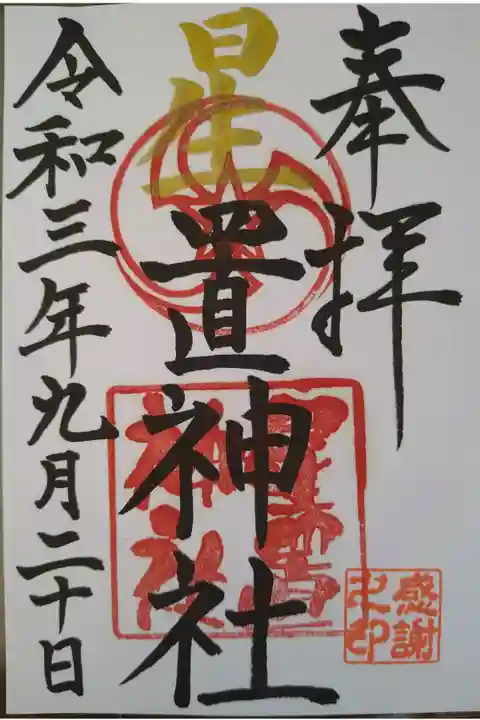 奉拝
星
置神社
星置神社
感謝之印
令和三年九月二十日